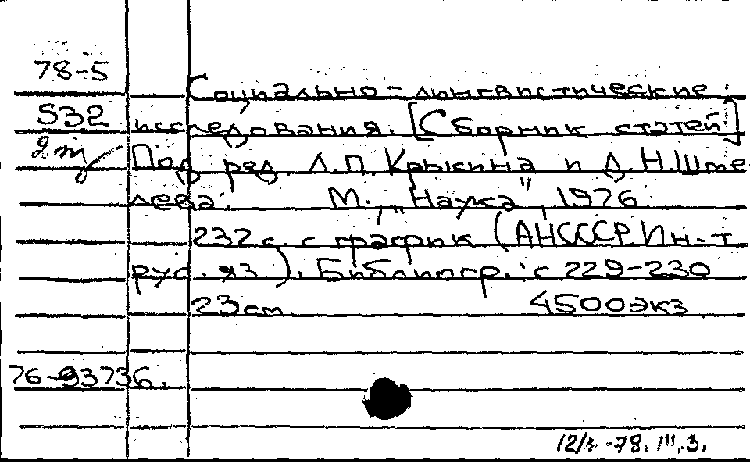 78-5
Социально-лингвистические
532 исследования. [Сборник статей]
2т Под ред. Л.П. Крысина и Д.Н.Шме
лева. М., "Наука", 1976
232 с. с график (АНСССР.Ин-т
рус. яз.). Библиогр.: с 229-230
23см 4500экз
76-93736.
78. III.3.